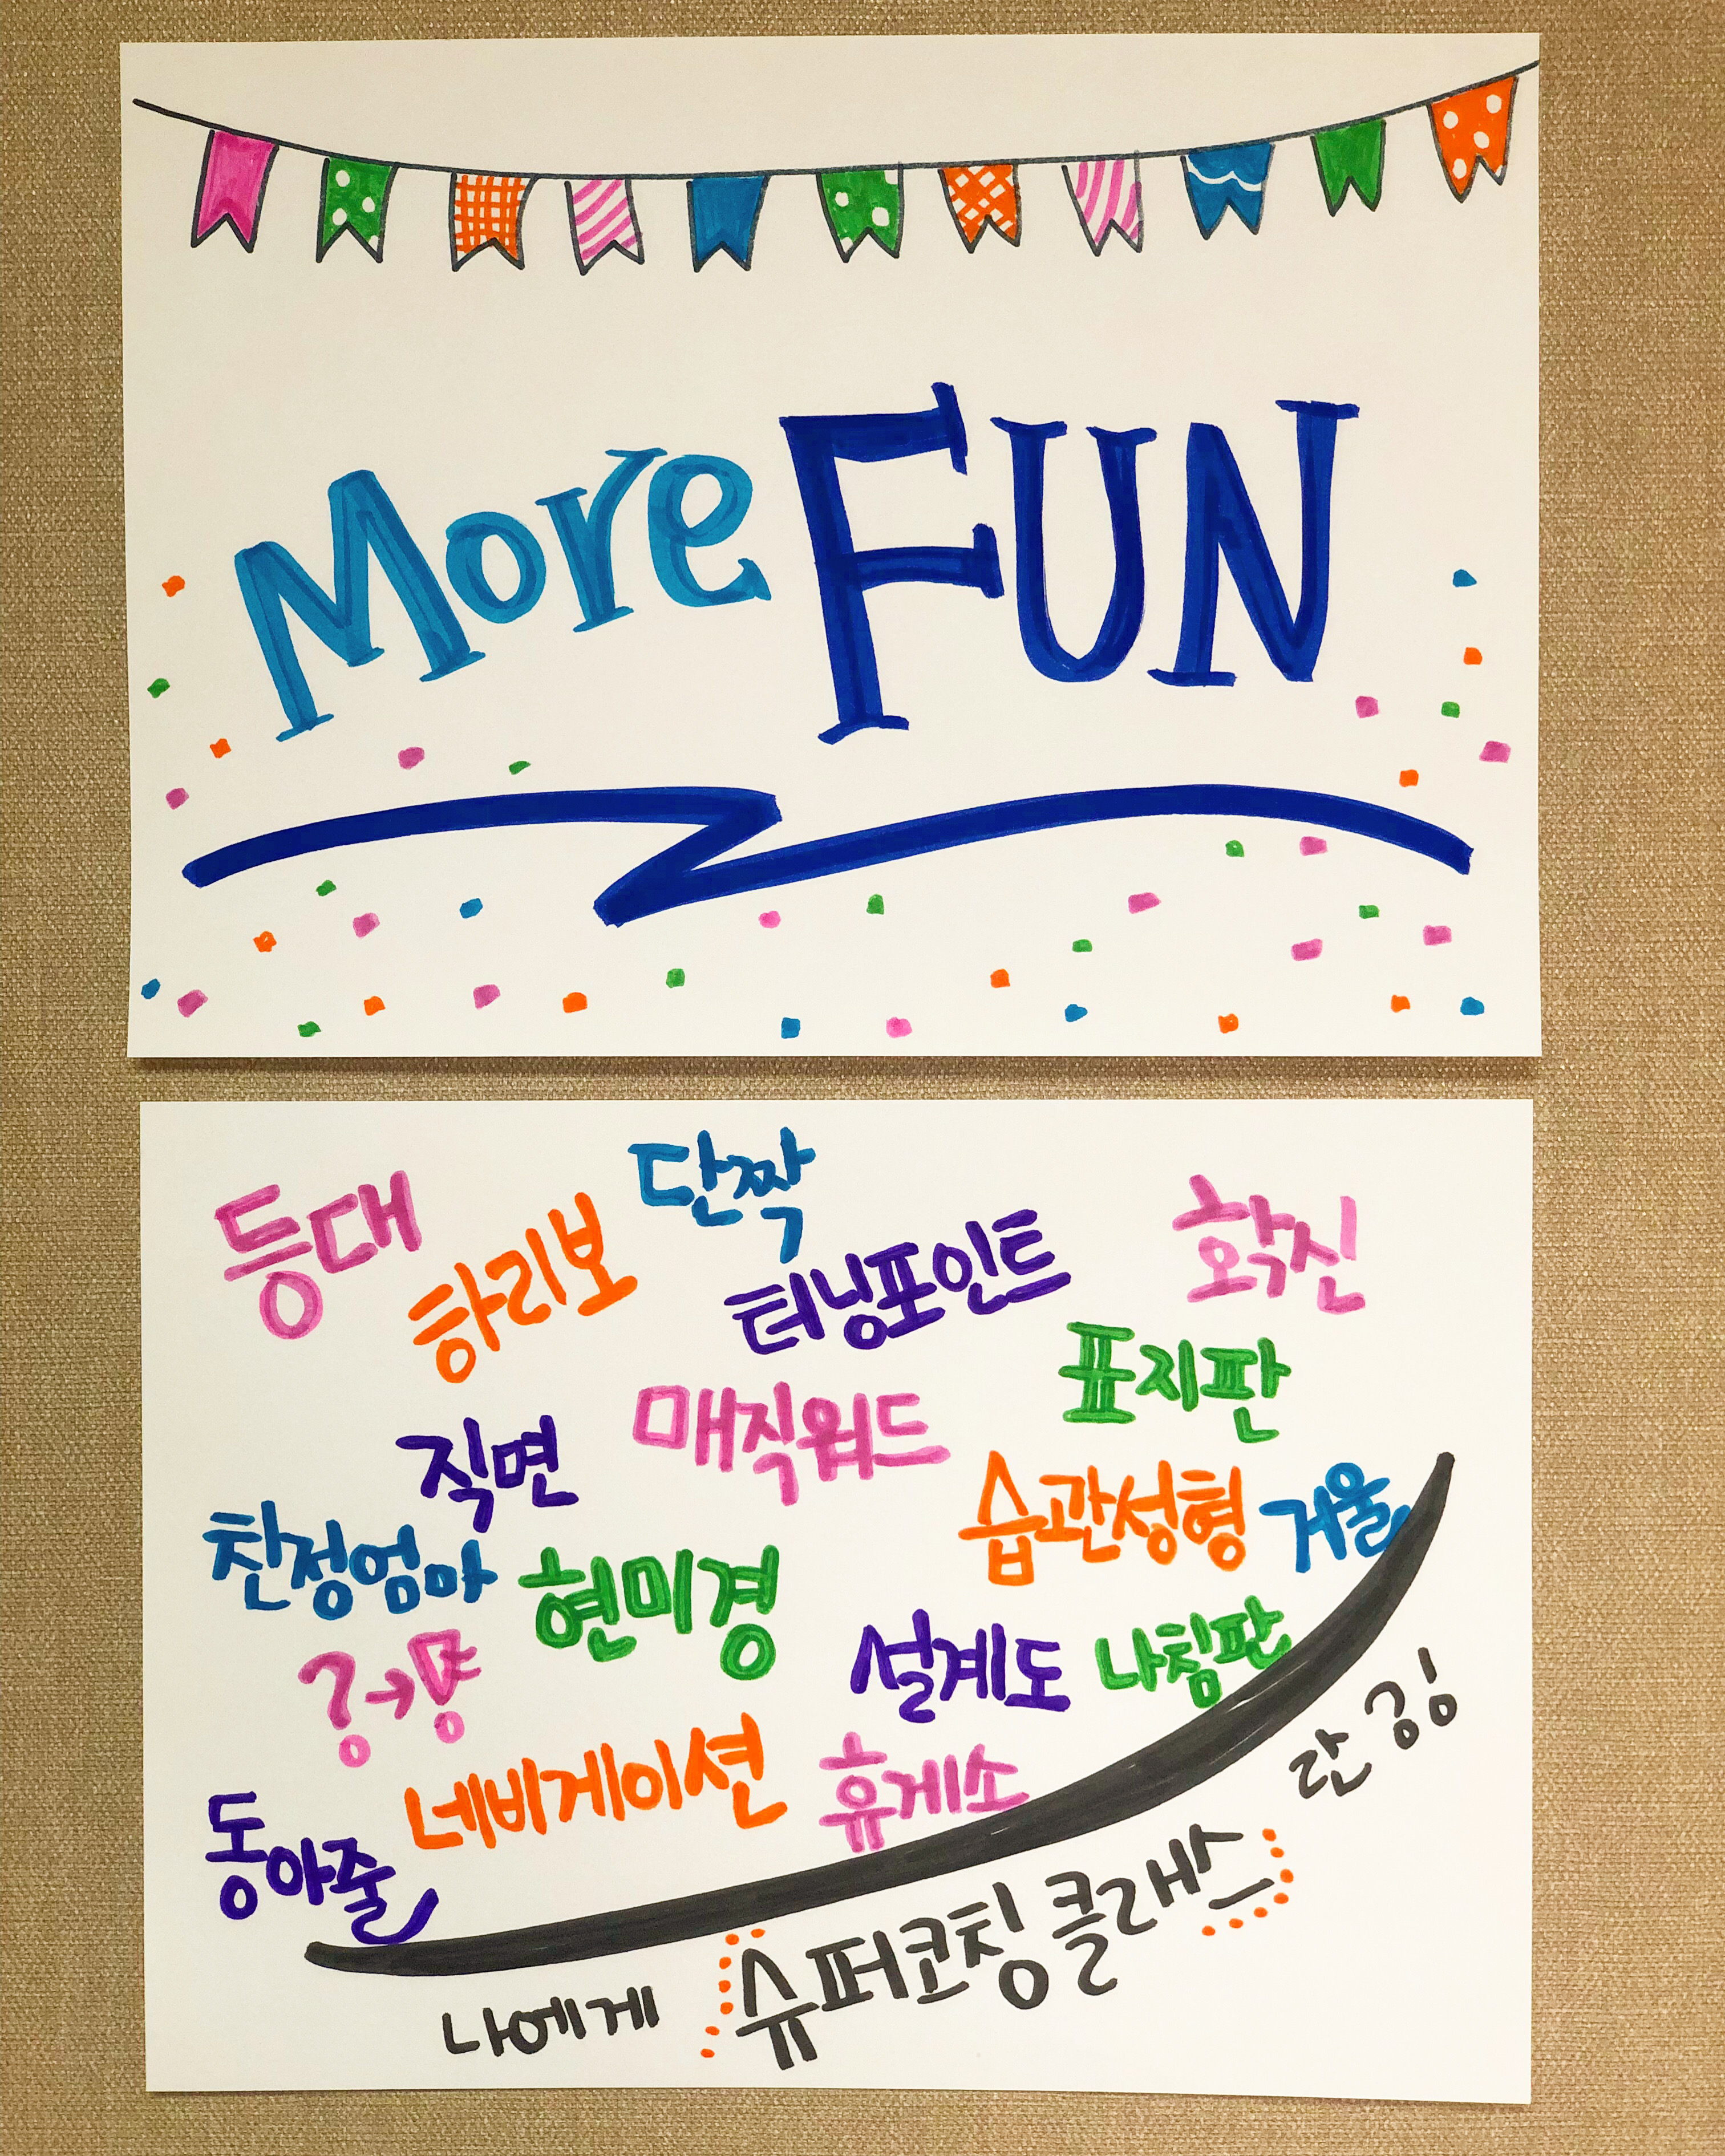 More FUN
등대
하리보
단짝
터닝포인트
확신
표지판
직면
매직워드
습관성형
거울
친정엄마
현미경
설계도
나침판
?→
네비게이션
휴게소
동아줄
나에게 슈퍼코칭클래스 란 ㅇㅇㅣㅇ